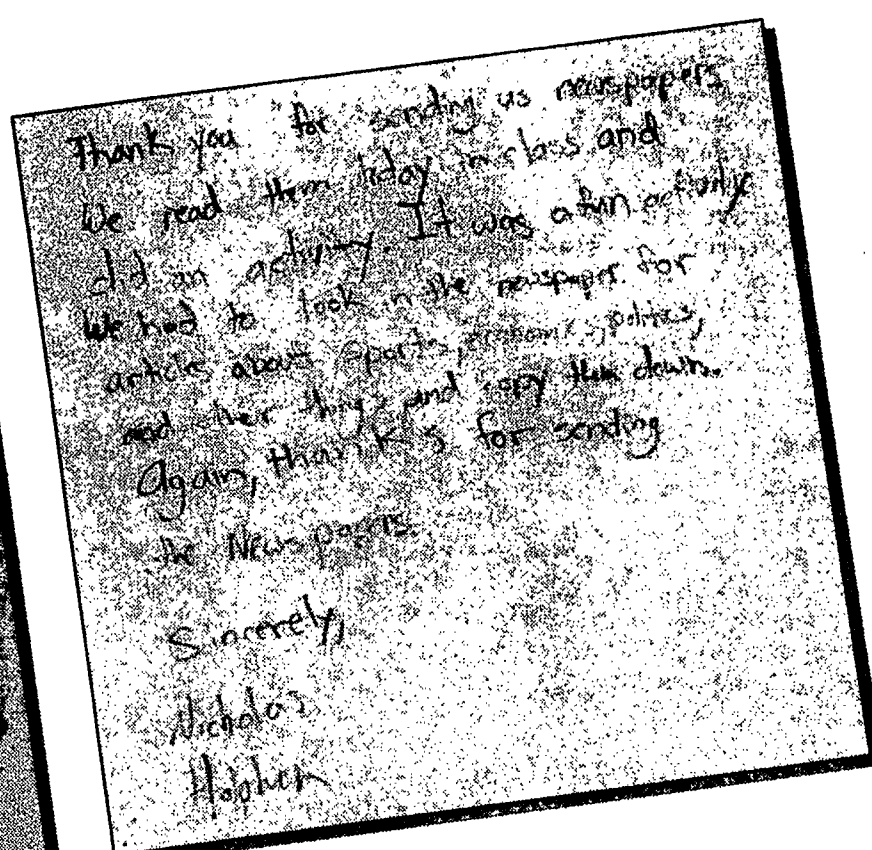 Thank you for sending us newspapers
We read them today in class and
did an activity. It was a fun activity
We had to look in the newspaper for
articles about sports, economics, politics,
and other things and copy them down.
Again, thanks for sending
the Newspapers.
Sincerely,
Nicholas